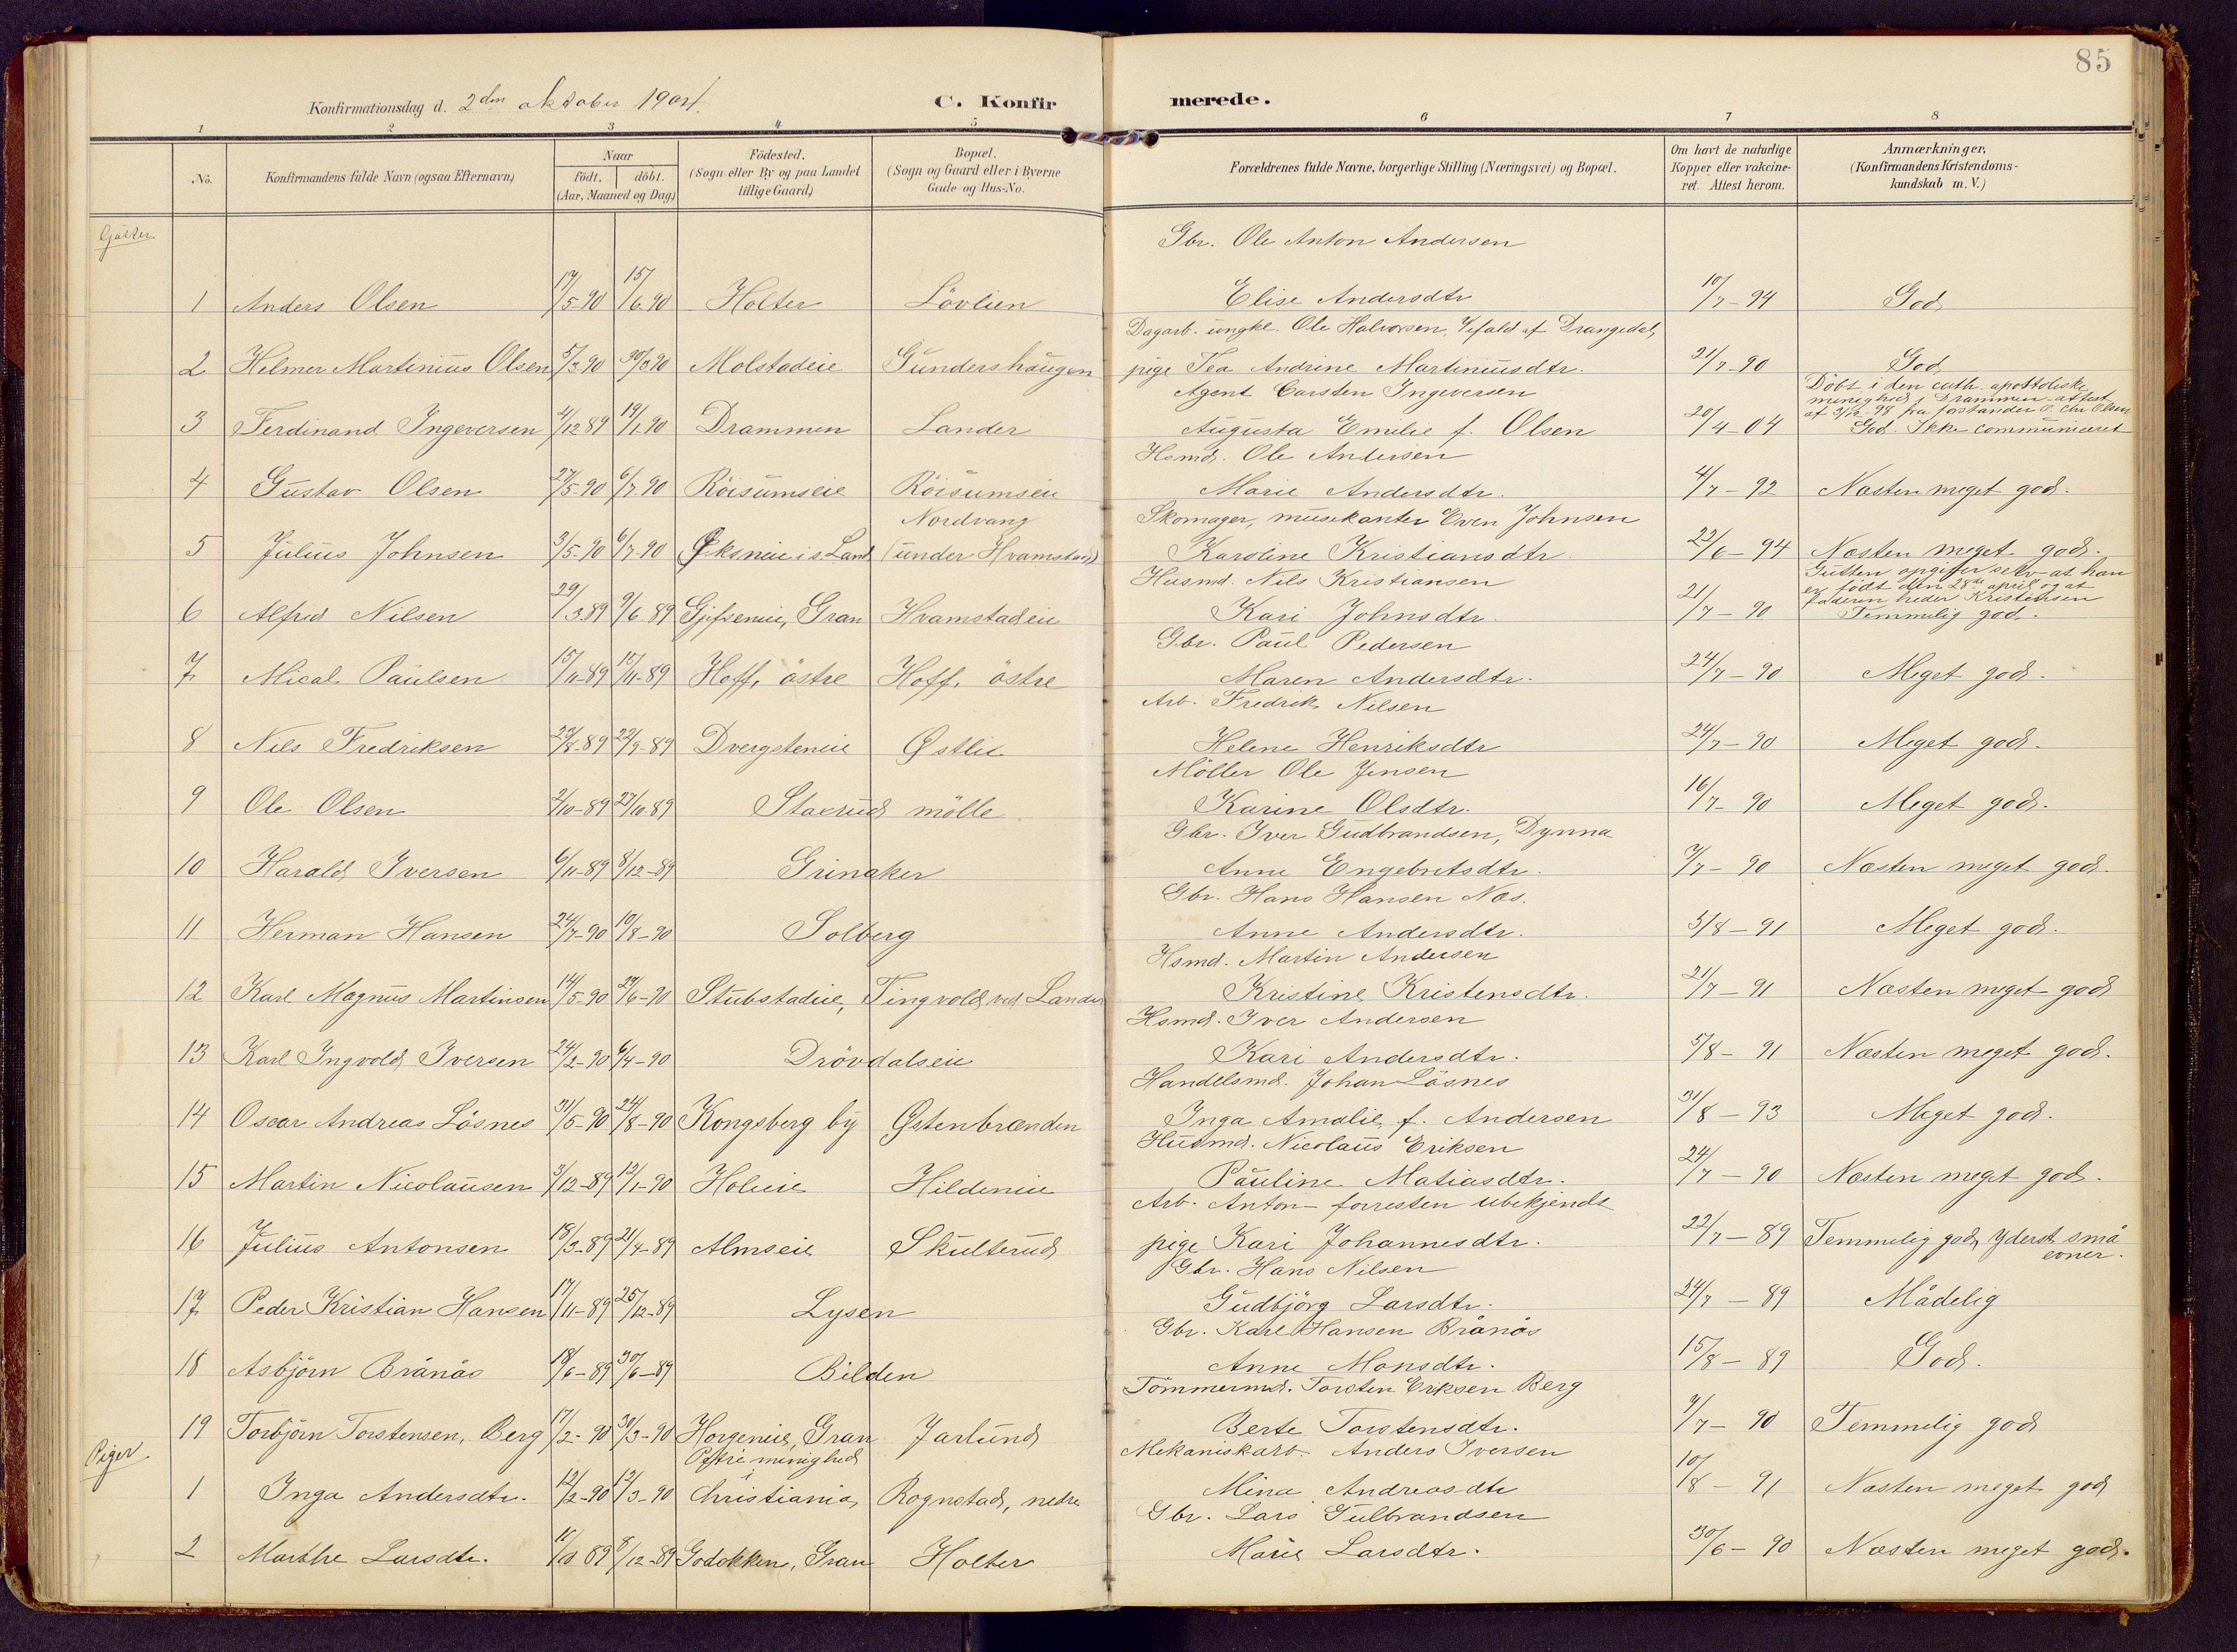 85
Konfirmationsdag d. 2den oktober 1904.
C. Konfirmerede.
1 2 3 4 5 6 7 8
No. Konfirmandens fulde Navn (ogsaa Efternavn) Naar født. døbt. (Aar, Maaned og Dag) Fødested. (Sogn eller By og paa Landet tillige Gaard) Bopæl. (Sogn og Gaard eller i Byerne Gade og Hus-No. Forældrenes fulde Navne, borgerlige Stilling (Næringsvei) og Bopæl. Om havt de naturlige Kopper eller vakcineret. Attest herom. Anmærkninger, (Konfirmandens Kristendomskundskab m. V.)
Gutter.
Gbr. Ole Anton Andersen
1 Anders Olsen 17/5-90 15/6 90 Holter Lövlien Elise Andersdtr 10/7-94 God
Dagarb. ungkl. Ole Halvorsen, af Drangedal,
2 Helmer Martinius Olsen 5/3 90 30/3 90 Molstadeie Gundershaugen pige Tea Andrine Martiniusdtr. 21/7-90 God
Agent Carsten Ingeversen Döbt i den cath. apostoliske
menighed i Drammen - attest
af 98 fra forstander O. Chr Olsen
3 Ferdinand Ingeversen 4/12 89 19/1 90 Drammen Lander Augusta Emilie f. Olsen 20/4-04 God. Ikke communiceret
Hsmd. Ole Andersen
4 Gustav Olsen 27/5-90 6/7 90 Röisumseie Röisumseie Marie Andersdtr. 4/7-92 Næsten meget god.
Nordvang Skomager, musikanter Even Johnsen
5 Julius Johnsen 3/5-90 6/7-90 Øksneie i s. Land (under Hvamstad) Karoline Kristiansdtr 22/6-94 Næsten meget god.
Husmd. Nils Kristiansen Gutten opgiver selv at han
er født den 28de april og at
faderen heder Kristensen
6 Alfred Nilsen 29/3 89 9/6 89 Gjefseneie, Gran Hvamstadeie Kari Johnsdtr. 21/7-90 Temmelig god.
Gbr. Paul Pedersen
7 Mical Paulsen 15/11-89 Hoff, östre Hoff, östre Maren Andersdtr. 24/7-90 Meget god.
Arb. Fredrik Nilsen
8 Nils Fredriksen 89 22/9-89 Dvergsteneie Østlie Helene Henriksdtr 24/7-90 Meget god.
Möller Ole Jensen
9 Ole Olsen 2/10-89 27/10 89 Staxrud mölle Karine Olsdtr. 16/7-90 Meget god.
Gbr. Iver Gudbrandsen, Dynna
10 Harald Iversen 6/11-89 8/12-89 Grinaker Anne Engebretsdtr. 90 Næsten meget god.
Gbr. Hans Hansen Næs.
11 Herman Hansen 24/7-90 10/8-90 Solberg Anne Andersdtr. 5/8-91 Meget god.
Hsmd. Martin Andersen
12 Karl Magnus Martinsen 14/5-90 29/6-90 Stubstadeie, Tingvold ved Lander Kristine Kristensdtr. 21/7-91 Næsten meget god
Hsmd. Iver Andersen
13 Karl Ingvold Iversen 24/2-90 6/4-90 Drövdalseie Kari Andersdtr. 5/8-91 Næsten meget god.
Handelsmd. Johan Lösnes
14 Oscar Andreas Lösnes 31/5-90 24/8-90 Kongsberg by Østenbrænden Inga Amalie, f. Andersen 31/8-93 Meget god.
Husmd. Nicolaus Eriksen
15 Martin Nicolausen 3/12-89 12/1-90 Holeeie Hildeneie Pauline Matiasdtr. 24/7-90 Næsten meget god.
Arb. Anton - forresten ubekjendt
16 Julius Antonsen 18/3-89 21/4-89 Almseie Skulterud pige Kari Johannesdtr. 22/7-89 Temmelig god, yderst små
evner.
Gbr. Hans Nilsen
17 Peder Kristian Hansen 17/11-89 25/12-89 Lysen Gudbjörg Larsdtr. 24/7-89 Mådelig
Gbr. Karl Hansen Brånås
18 Asbjörn Brånås 18/6-89 30/6-89 Bilden Anne Monsdtr. 15/8-89 God.
Tömmermd. Torsten Eriksen Berg
19 Torbjörn Torstensen, Berg 17/2-90 30/3-90 Horgeneie, Gran Jarlund Berte Torstensdtr. 90 Temmelig god
Piger. Østre menighed Mekaniskarb. Anders Iversen
i
1 Inga Andersdtr. 12/2-90 3-90 Christiania, Rognstad, nedre Mina Andreasdtr 10/8-91 Næsten meget god
Gbr. Lars Gulbrandsen
2 Marthe Larsdtr. 11/10 89 8/12-89 Godakken, Gran Holter Marie Larsdtr. 30/6-90 Næsten meget god.